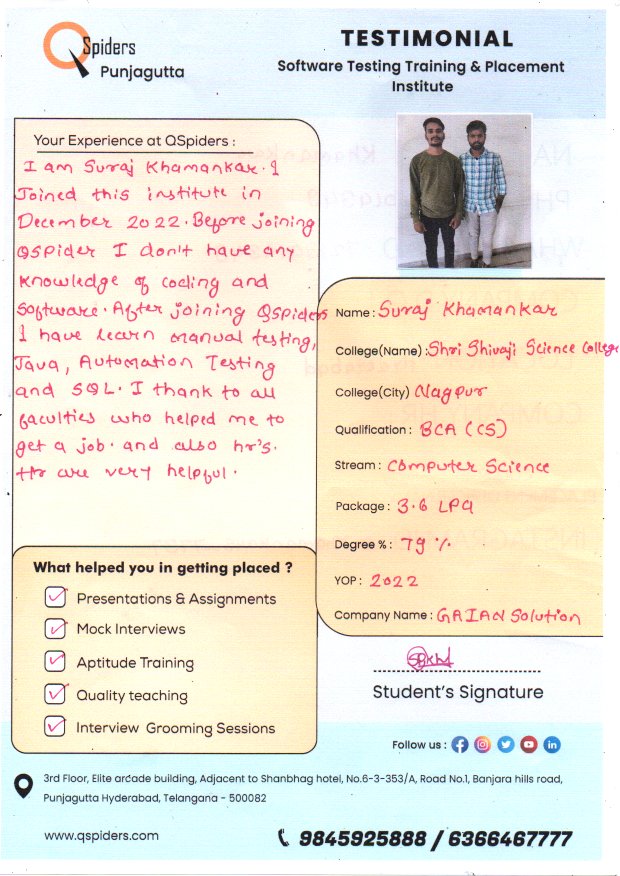 QSpiders
Punjagutta
TESTIMONIAL
Software Testing Training & Placement
Institute
Your Experience at QSpiders :
I am Suraj Khamankar. I
Joined this institute in
December 2022. Before joining
QSPider I don't have any
knowledge of coding and
Software. After joining QSpiders
I have learn manual testing,
Java, Automation Testing
and SQL. I thank to all
faculties who helped me to
get a job. and also hr's.
Hr are very helpful.
Name : Suraj Khamankar
College(Name) : Shri Shivaji Science College
College(City) Nagpur
Qualification : BCA (CS)
Stream : Computer Science
Package : 3.6 LPA
Degree % : 79 %
YOP : 2022
Company Name : GAIAN Solution
What helped you in getting placed ?
Presentations & Assignments
Mock Interviews
Aptitude Training
Quality teaching
Interview Grooming Sessions
Student's Signature
Follow us :
3rd Floor, Elite arcade building, Adjacent to Shanbhag hotel, No.6-3-353/A, Road No.1, Banjara hills road,
Punjagutta Hyderabad, Telangana - 500082
www.qspiders.com
9845925888 / 6366467777